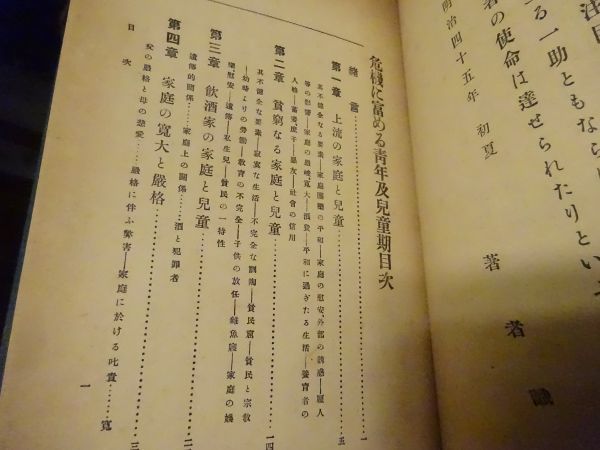 注目
る一助ともならば
者の使命は達せられたりといふ
明治四十五年 初夏
著者識
危機に富める靑年及兒童期目次
緖言……一
第一章 上流の家庭と兒童……五
其不健全なる要素―家庭團欒の平和―家庭の慰安外部の誘惑―雇人
等の影響―家庭の過嚴、寬大―酒食―平和に過ぎたる生活―養育者の
人格―蓄妾、庶子―惡友―社會の信用
第二章 貧窮なる家庭と兒童……一四
其不健全な要素―寂寞な生活―不完全な訓陶―貧民窟―貧民と宗敎
―幼時よりの勞働―敎育の不完全―子供の放任―
―家庭の娛
樂慰安―遺傳―私生兒―貧民の一特性
第三章 飮酒家の家庭と兒童……二
遺傳的關係……家庭上の關係……酒と犯罪者
第四章 家庭の寬大と嚴格……三
父の嚴格と母の慈愛……嚴格に伴ふ弊害―家庭に於ける叱責……寬
目次
一